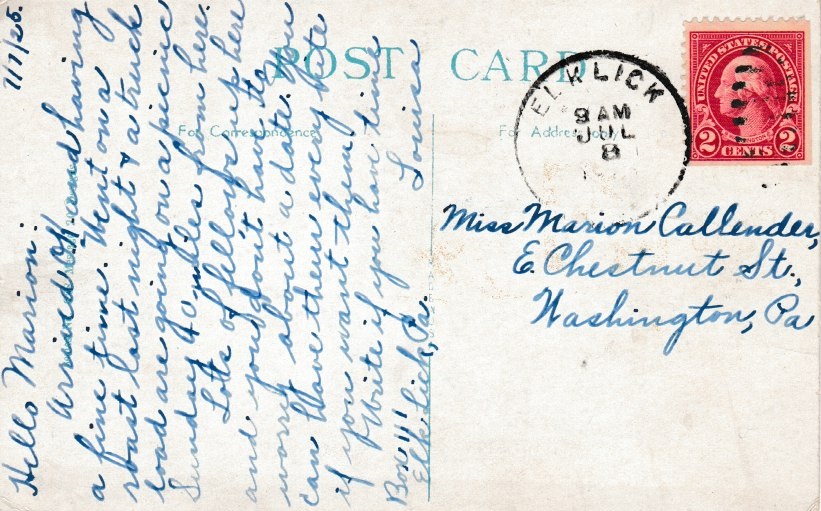 7/7/25.
Hello Marion:
Arrived OK and having
a fine time. Went on a
roast last night & a truck
load are going on a picnic
Sunday 40 miles from here.
Lots of fellows up here
and you don't have to
worry about a date. You
can have them every nite
if you want them
Write if you have time
Louisa
Box 111
Elk Lick, Pa.
POST CARD
For Correspondence
For Address Only
ELK LICK
9 AM
JUL
8
UNITED STATES POSTAGE
2 CENTS 2
Miss Marion Callender,
E. Chestnut St.,
Washington, Pa